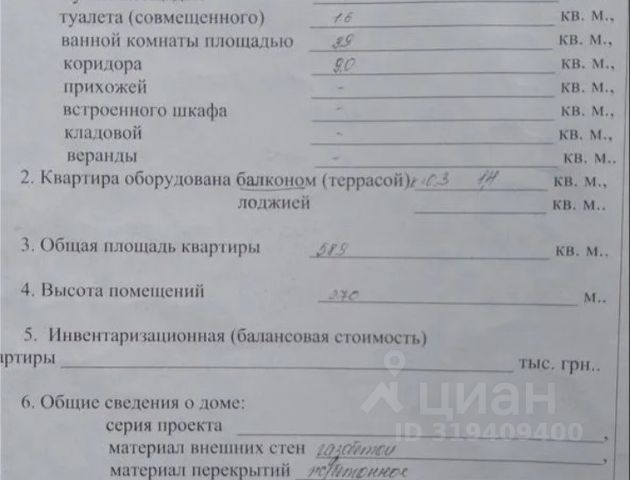 туалета (совмещенного) 1.6 кв. м.,
ванной комнаты площадью 3,9 кв. м.,
коридора 9,0 кв. м.,
прихожей - кв. м.,
встроенного шкафа - кв. м.,
кладовой - кв. м.,
веранды - кв. м..
2. Квартира оборудована балконом (террасой) к-0.3 1,4 кв. м.,
лоджией кв. м..
3. Общая площадь квартиры 58,9 кв. м..
4. Высота помещений 2.70 м..
5. Инвентаризационная (балансовая стоимость)
артиры тыс. грн..
циан
6. Общие сведения о доме:
ID 319409400
серия проекта ,
материал внешних стен газобетон ,
материал перекрытий ж/бетонное